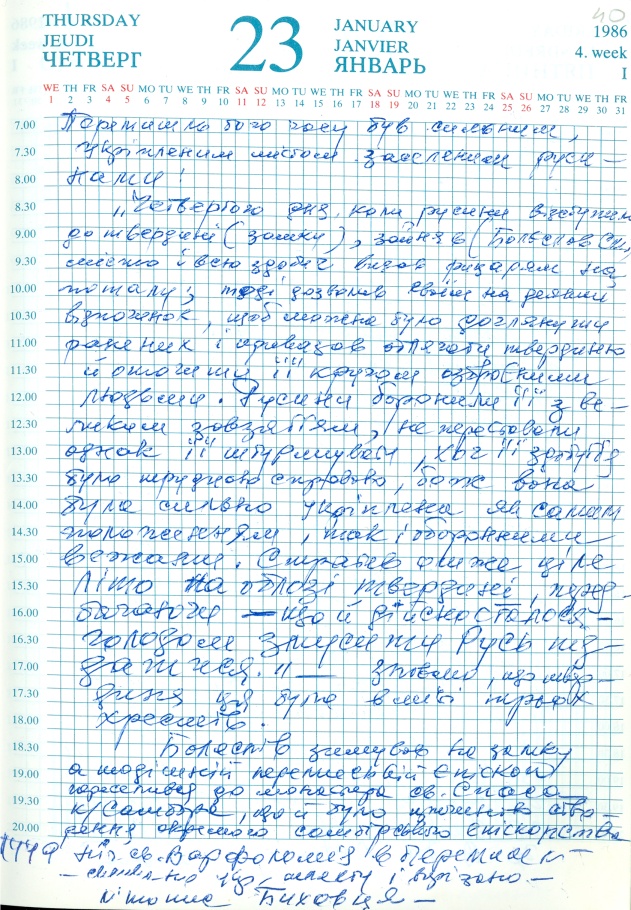 40
THURSDAY
JEUDI
ЧЕТВЕРГ
23
JANUARY
JANVIER
ЯНВАРЬ
1986
4. week
I
WE TH FR SA SU MO TU WE TH FR SA SU MO TU WE TH FR SA SU MO TU WE TH FR SA SU MO TU WE TH FR
1 2 3 4 5 6 7 8 9 10 11 12 13 14 15 16 17 18 19 20 21 22 23 24 25 26 27 28 29 30 31
7.00 Перемишль того часу був сильним,
7.30 укріпленим містом заселеним руси-
8.00 нами!
8.30 „Четвертого дня, коли русини відступили
9.00 до твердині (замку), зайняв (Болеслав См.)
9.30 місто і всю здобич видав рицарям на
10.00 поталу; тоді дозволив своїм на деякий
10.30 відпочинок, щоб можна було доглянути
11.00 ранених і приказав облягати твердиню
11.30 й оточити її кругом озброєними
12.00 людьми. Русини боронили її з ве-
12.30 ликим завзяттям, не переставали
13.00 однак її штурмувати, хоч її здобуття
13.30 було трудною справою, бо ж вона
14.00 була сильно укріплена як самим
14.30 положенням, так і оборонними
15.00 вежами. Стратив отже ціле
15.30 літо на облозі твердині, перед-
16.00 бачаючи — що й дійсно сталося —
16.30 голодом змусити Русь під-
17.00 датися." — що твер-
17.30 диня ця була в місті трьох
18.00 хрестів.
18.30 Болеслав замкну
19.00 а тодішній перемиський Єпископ
19.30 переселився до монастиря св. Спаса
20.00 к/Самбора, що й було
самбірського Єпископства
1449 св. Варфоломія в Перемишлі —
і від
літопис Биховця —